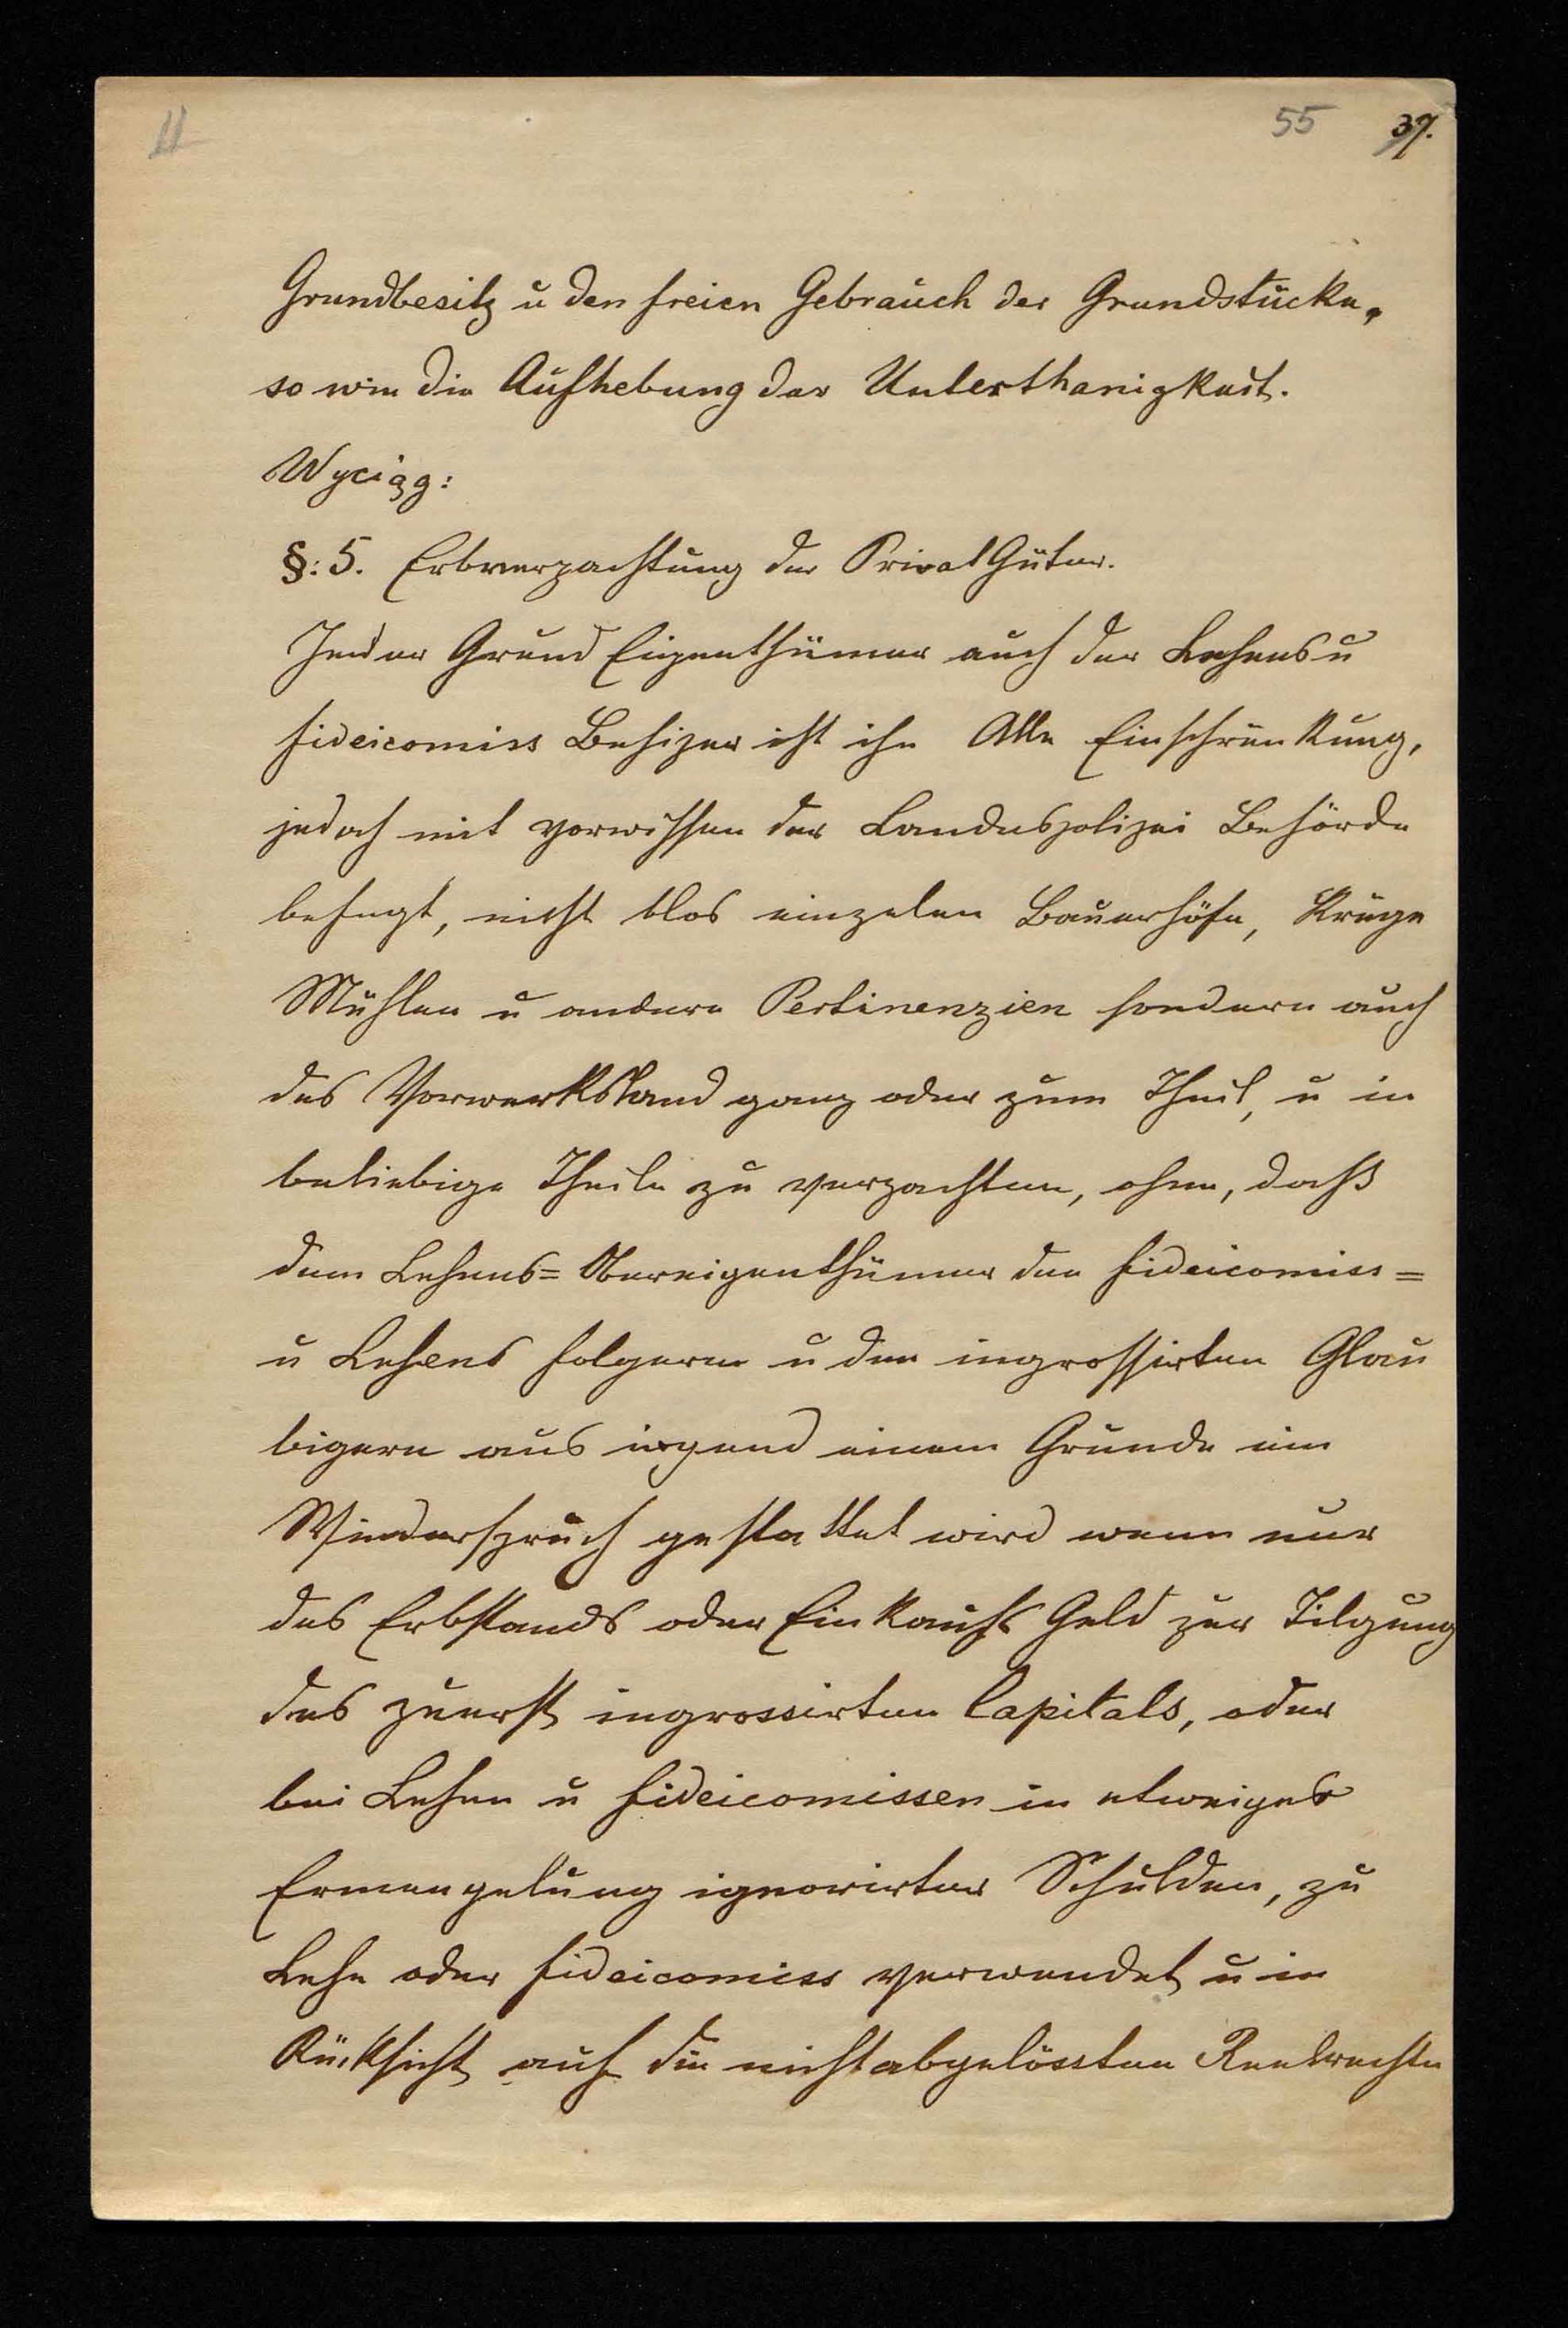 11 55 37.
Grundbesitz u den freien Gebrauch der Grundstücke,
so wie die Aufhebung der Unterthanigkeit.
Wyciąg:
§: 5. Erbverpachtung der Privat Güter.
Jeder Grund Eigenthümer auch der Lehens u
fideicomiss Besizer ist ohn Alle Einschränkung,
jedoch mit vorwissen der Landespolizei Behörde
befugt, nicht blos einzelne Bauerhöfe, Krüge
Mühlen u andere Pertinenzien sondern auch
das Vorwerksland ganz oder zum Theil, u in
beliebige Theile zu verpachten, ohne, daß
dem Lehens= Obereigenthümer den fideicomiss=
u Lehens folgern u den ingrossirten Glau
bigern aus irgend einem Grunde ein
Wiederspruch gestattet wird wenn nur
das Erbstands oder Einkaufs Geld zur Tilgung
des zuerst ingrossirten Capitals, oder
bei Lehen u fideicomissen in etweiger
Ermangelung ignorirter Schulden, zu
Lehn oder fideicomiss verwendet u in
Rücksicht auf die nicht abgelössten Realrechte